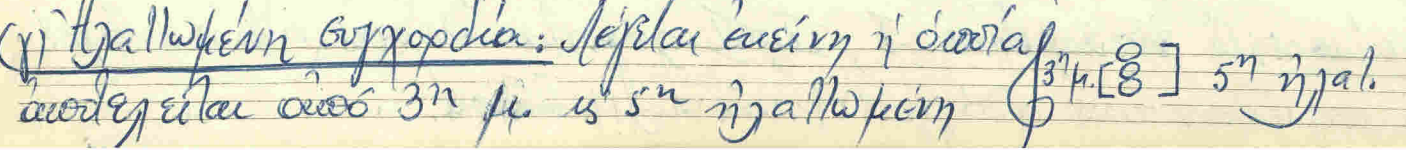 (γ) Ἠλαττωμένη συγχορδία: Λέγεται ἐκείνη ἡ ὁποία
ἀποτελεῖται ἀπό 3ην μ. κ 5ην ἠλαττωμένη 3η μ. [8] 5η ἠλατ.